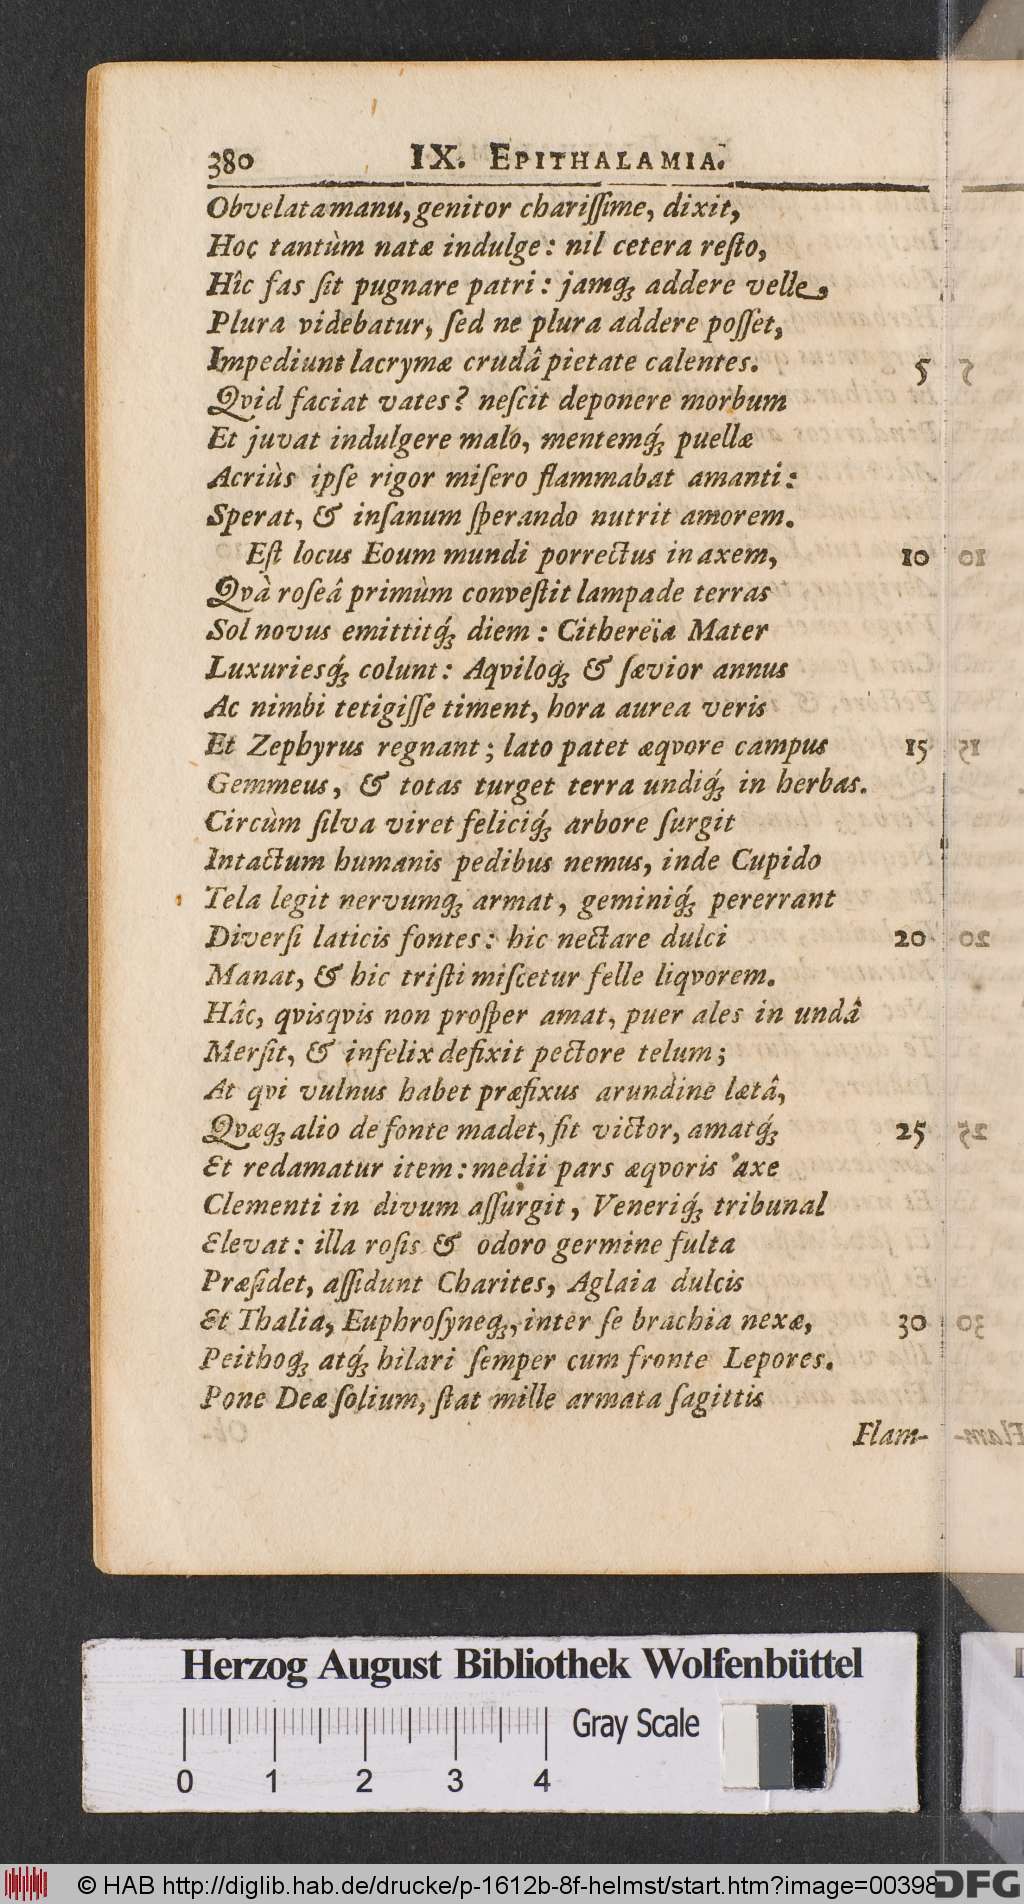 380 IX. EPITHALAMIA.
Obvelata manu, genitor chariſſime, dixit,
Hoc tantùm natæ indulge: nil cetera reſto,
Hîc fas ſit pugnare patri: jamq́; addere velle,
Plura videbatur, ſed ne plura addere poſſet,
Impediunt lacrymæ crudâ pietate calentes. 5
Qvid faciat vates? neſcit deponere morbum
Et juvat indulgere malo, mentemq́; puellæ
Acriùs ipſe rigor miſero flammabat amanti:
Sperat, & inſanum ſperando nutrit amorem.
Eſt locus Eoum mundi porrectus in axem, 10
Qvà roſeâ primùm conveſtit lampade terras
Sol novus emittitq́; diem: Cithereïa Mater
Luxuriesq́; colunt: Aqviloq; & ſævior annus
Ac nimbi tetigiſſe timent, hora aurea veris
Et Zephyrus regnant; lato patet æqvore campus 15
Gemmeus, & totas turget terra undiq́; in herbas.
Circùm ſilva viret feliciq́; arbore ſurgit
Intactum humanis pedibus nemus, inde Cupido
Tela legit nervumq; armat, geminiq́; pererrant
Diverſi laticis fontes: hic nectare dulci 20
Manat, & hic triſti miſcetur felle liqvorem.
Hâc, qvisqvis non proſper amat, puer ales in undâ
Merſit, & infelix defixit pectore telum;
At qvi vulnus habet præfixus arundine lætâ,
Qvæq; alio de fonte madet, ſit victor, amatq́; 25
Et redamatur item: medii pars æqvoris axe
Clementi in divum aſſurgit, Veneriq́; tribunal
Elevat: illa roſis & odoro germine fulta
Præſidet, aſſidunt Charites, Aglaia dulcis
Et Thalia, Euphroſyneq;, inter ſe brachia nexæ, 30
Peithoq; atq́; hilari ſemper cum fronte Lepores.
Pone Deæ ſolium, ſtat mille armata ſagittis
Flam-
Herzog August Bibliothek Wolfenbüttel
Gray Scale
0 1 2 3 4
© HAB http://diglib.hab.de/drucke/p-1612b-8f-helmst/start.htm?image=00398
DFG